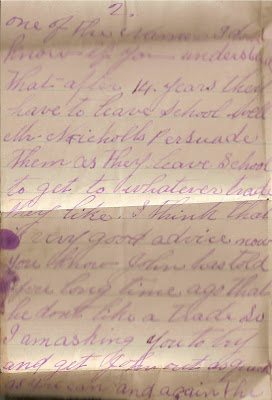 2.
one of the names I dont
know if you understand
that after 14 years they
have to leave School well
Mr. Nicholls Persuade
them as they leave School
to get to whatever trade
they like. I think that
a very good advice now
you know John has told
you long time ago that
he dont like a trade so
I am asking you to try
and get John out as quick
as you can and again the